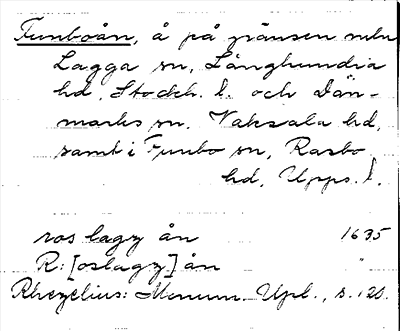 Funboån, å på gränsen mlm
Lagga sn, Långhundra
hd, Stockh. l. och Dan-
marks sn, Vaksala hd,
samt i Funbo sn, Rasbo
hd, Upps. l.
ros lagz ån 1635
R: [oslagz] ån "
Rhezelius: Monum. Upl., s. 120.